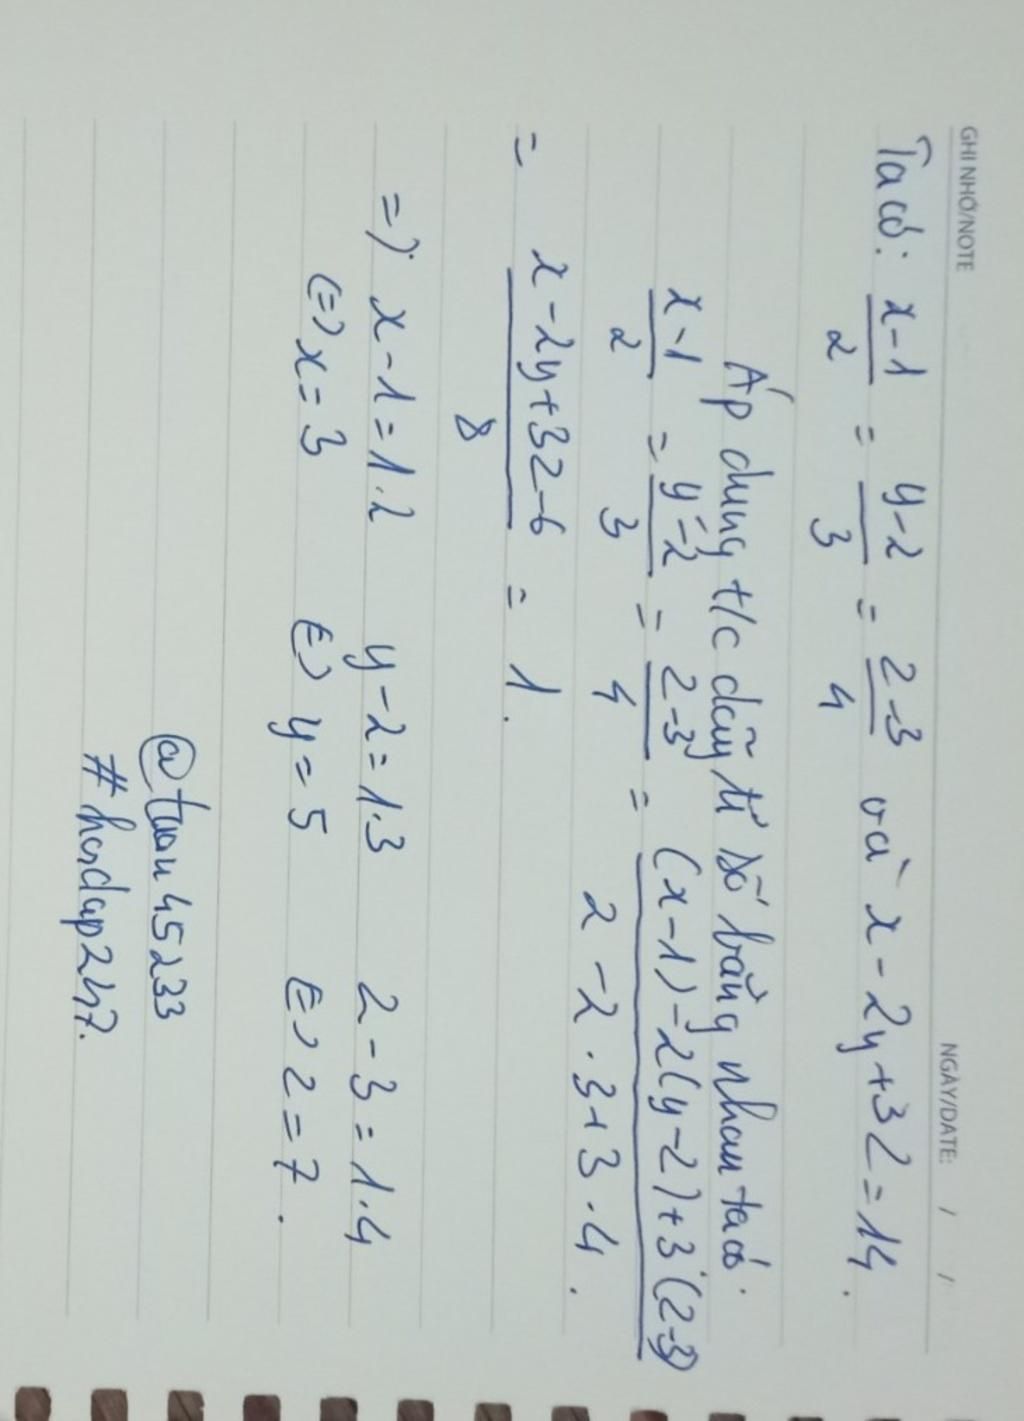 GHI NHỚ/NOTE NGÀY/DATE: / /
Ta có: x-1/2 = y-2/3 = z-3/4 và x-2y+3z=14.
Áp dụng t/c dãy tỉ số bằng nhau ta có:
x-1/2 = y-2/3 = z-3/4 = (x-1)-2(y-2)+3(z-3)/2-2.3+3.4.
= x-2y+3z-6/8 = 1.
=> x-1=1.2 y-2=1.3 z-3=1.4
(=) x=3 (=) y=5 (=) z=7.
@tuan45233
#hoidap247.